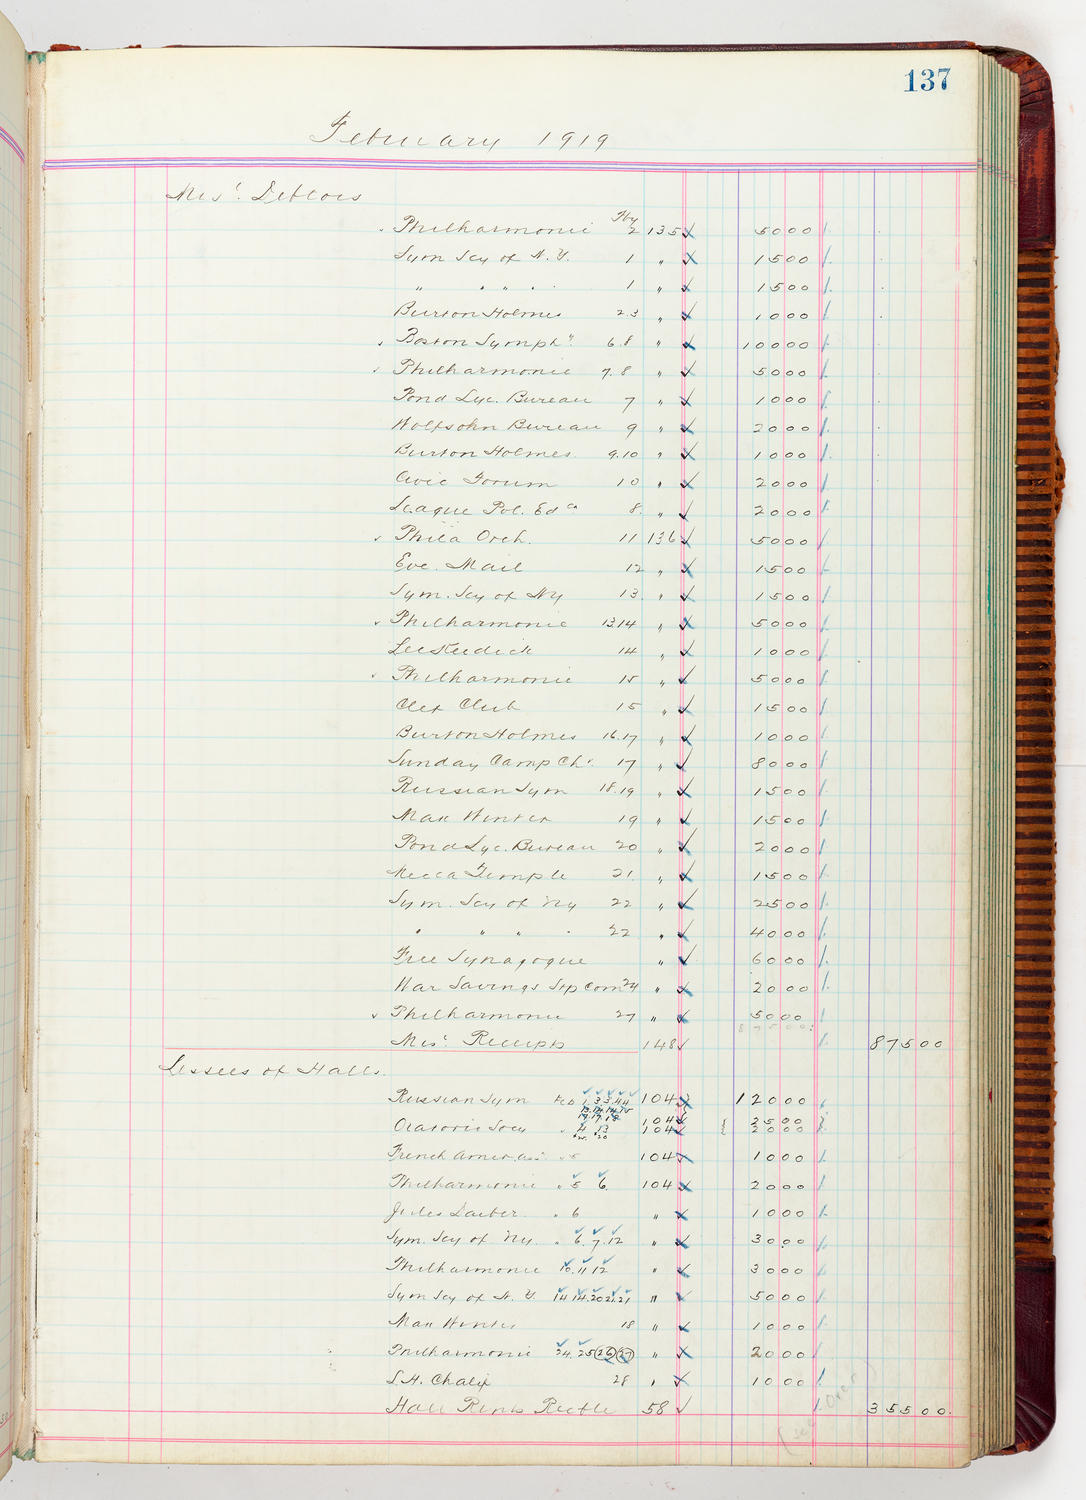 137
February 1919
Mis! Debtors
Fby
Philharmonic 2 135 5000
Sym Scy of N.Y. 1 " 1500
" " " " 1 " 1500
Burton Holmes 2.3 " 1000
Boston Symphy 6.8 " 10000
Philharmonic 7.8 " 5000
Pond Lyc. Bureau 7 " 1000
Wolfsohn Bureau 9 " 2000
Burton Holmes 9.10 " 1000
Civic Forum 10 " 2000
League Pol. Edcn 8 " 2000
Phila Orch. 11 136 5000
Eve. Mail 12 " 1500
Sym. Scy of NY 13 " 1500
Philharmonic 13.14 " 5000
Lee Keedick 14 " 1000
Philharmonic 15 " 5000
Clef Club 15 " 1500
Burton Holmes 16.17 " 1000
Sunday Camp Chr. 17 " 8000
Russian Sym 18.19 " 1500
Max Winter 19 " 1500
Pond Lyc. Bureau 20 " 2000
Mecca Temple 21 " 1500
Sym. Scy of NY 22 " 2500
" " " " 22 " 4000
Free Synagogue " 6000
War Savings Stp Com 24 " 2000
Philharmonic 27 " 5000
87500
Mis! Receipts 148 87500
Lessees of Halls.
Russian Sym Feb 1. 3 3. 4 4 104 12000
13. 14. 14. 15
17. 17. 18
Oratorio Socy 4 13 104 3500
25. 20 104 2000
French Amer. Assn " 5 104 1000
Philharmonic " 5 6. 104 2000
Jules Daiber " 6 " 1000
Sym. Scy of Ny. " 6. 7. 12 " 3000
Philharmonic 10. 11 12 " 3000
Sym Scy of N.Y. 14 14. 20 21. 21 " 5000
Max Winter 18 " 1000
Philharmonic 24. 25 26 27 " 2000
S.H. Chalif 28 " 1000
Hall Rents Rectble 58 35500.
(see over)